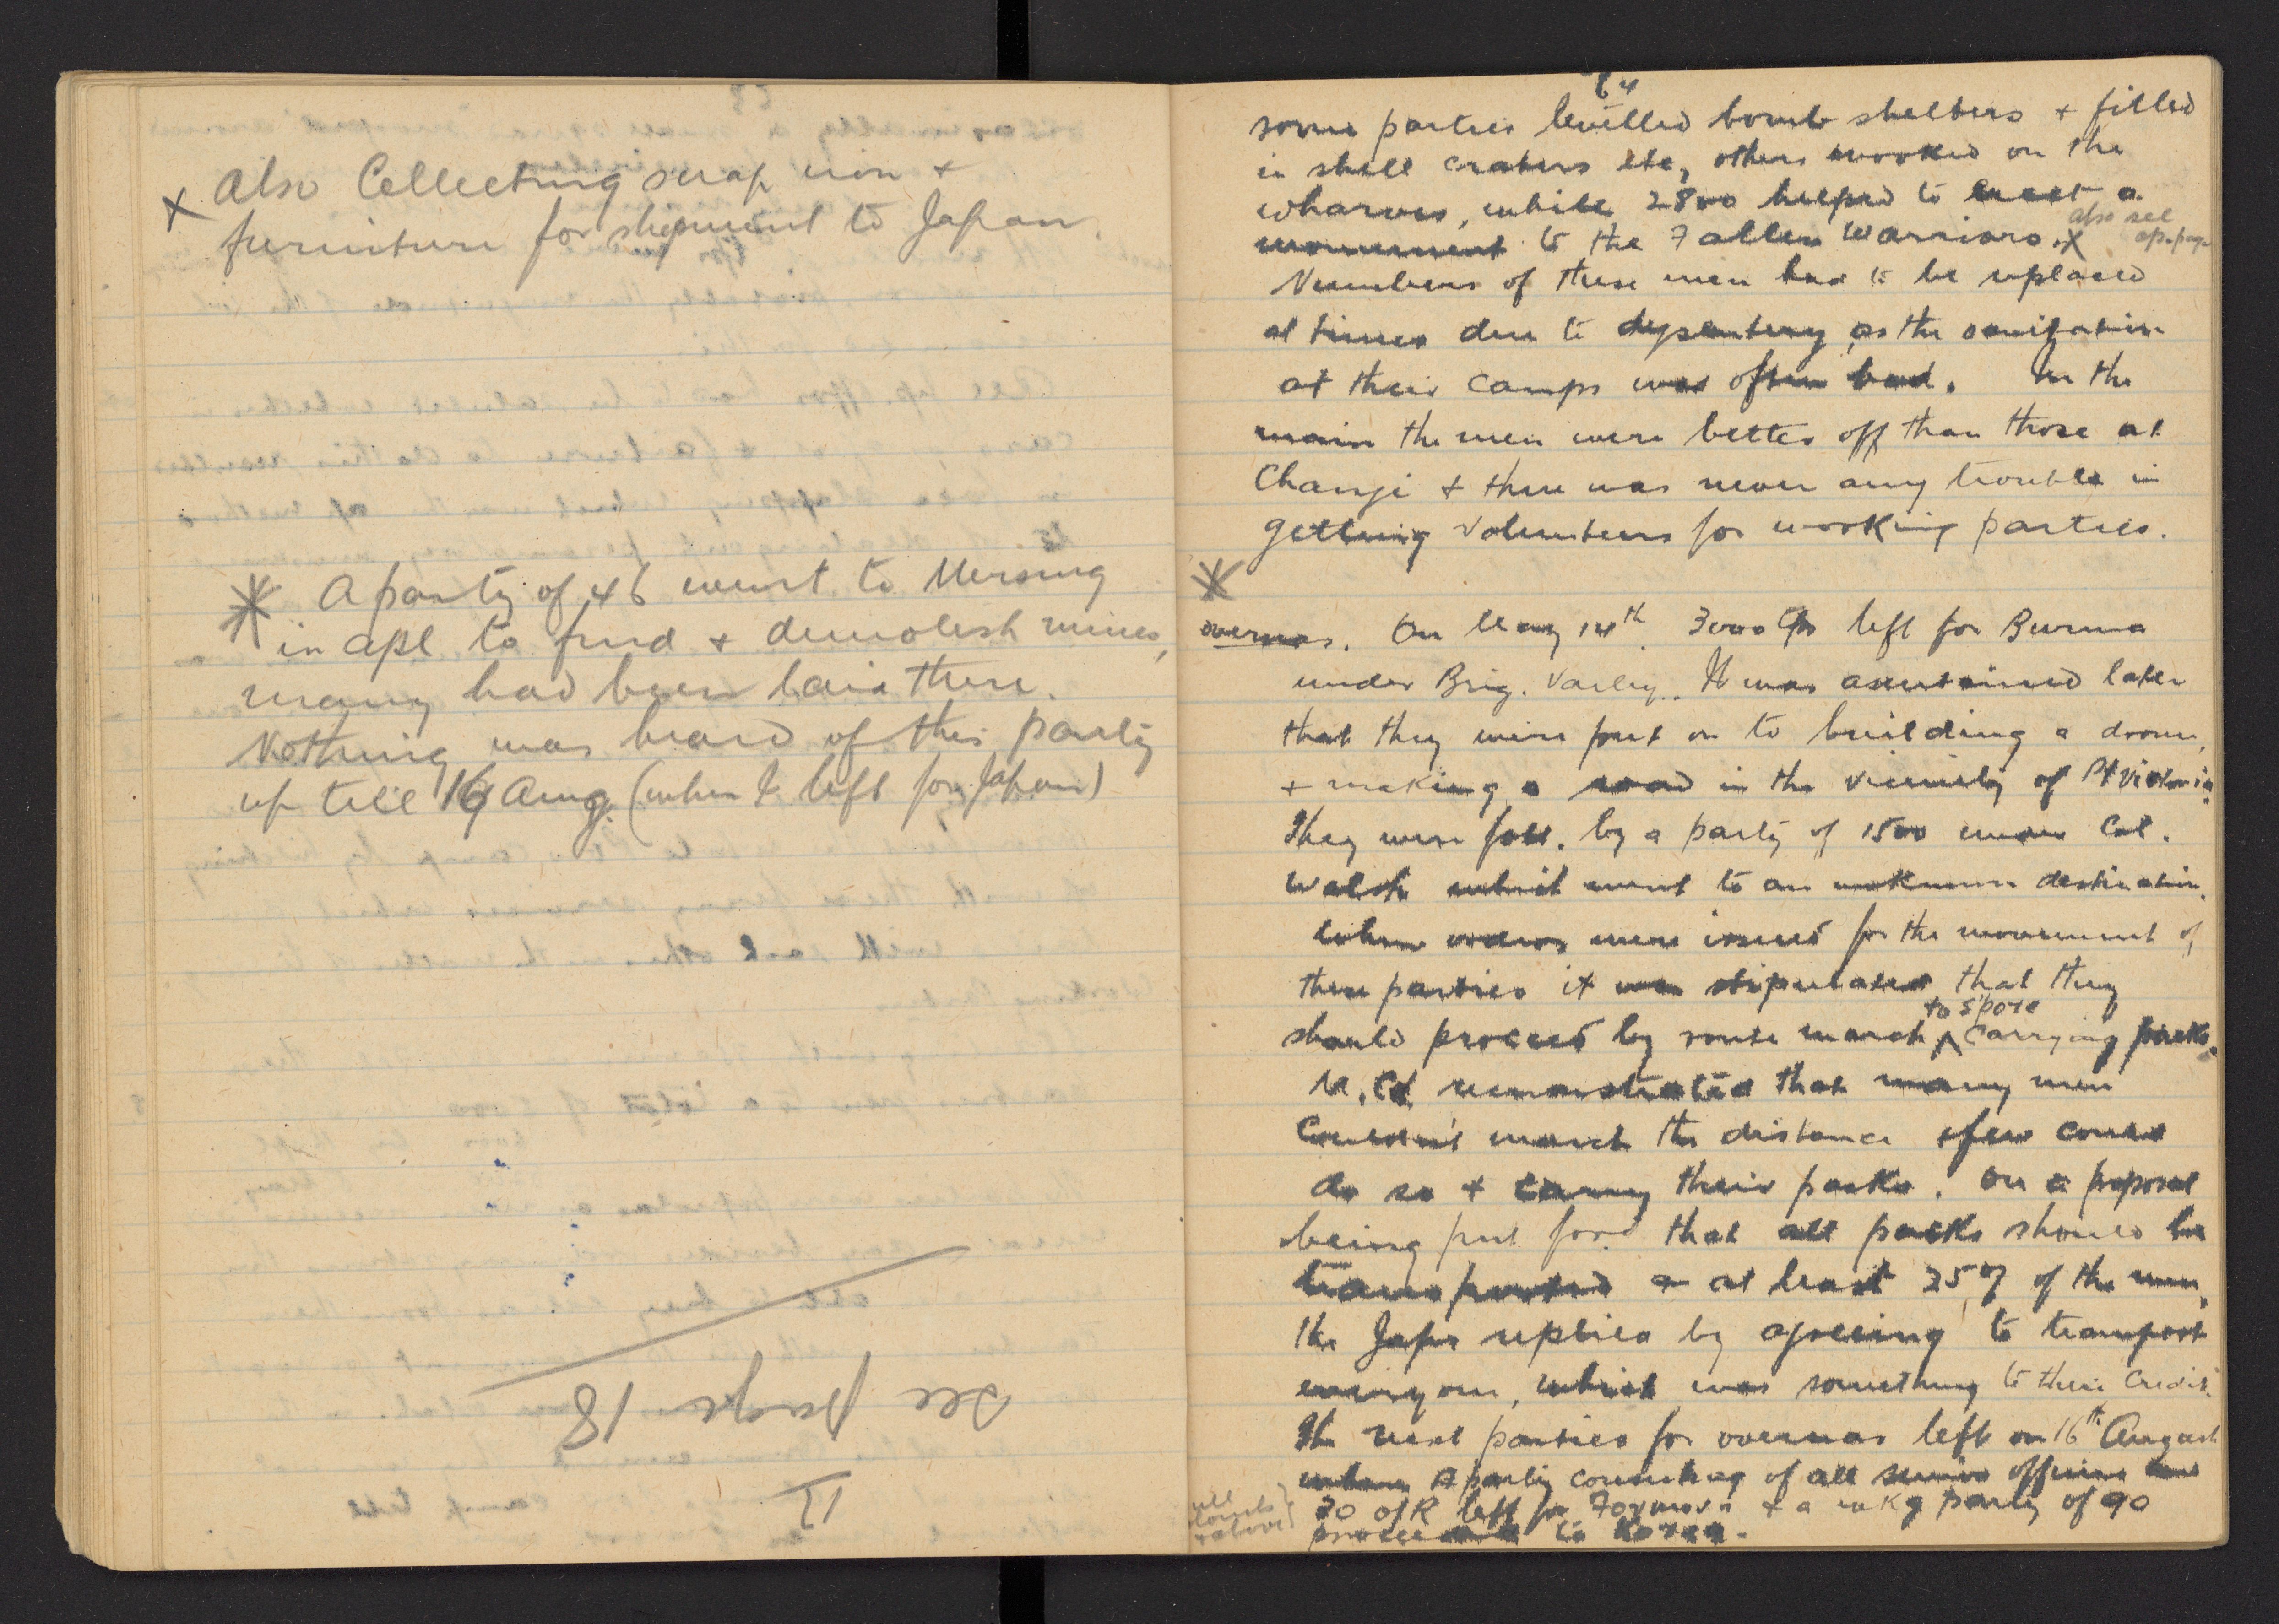 x also Collecting scrap iron +
furniture for shipment to Japan.
* A party of 46 went to Mersing
in Apl to find + demolish mines,
many had been laid there.
Nothing was heard of this party
up till 16 Aug. (when I left for Japan)
see page 18
II
64
some parties levelled bomb shelters + filled
in shell craters etc, others worked on the
wharves, while 2800 helped to erect a
monument to the Fallen Warriors. x also see op. page
Numbers of these men had to be replaced
at times due to dysentery, as the sanitation
at their camps was often bad. In the
main the men were better off than those at
Changi + there was never any trouble in
getting volunteers for working parties.
*
overseas. On May 14th 3000 left for Burma
under Brig. Varley. It was ascertained later
that they were put on to building a drome,
+ making a road in the vicinity of Pt Victoria.
They were foll. by a party of 1500 under Col.
Walsh which went to an unknown destination.
When orders were issued for the movement of
these parties it was stipulated that they
should proceed by route march to S'pore carrying packs.
M.Ed remonstrated that many men
Couldn't march the distance + few could
do so + carry their packs. On a proposal
being put ford that all packs should be
transported + at least 25% of the men,
the Japs replied by agreeing to transport
everyone, which was something to their credit.
The next parties for overseas left on 16th August
when A party consisting of all senior officers and
all Cols + above
30 O/R left for Formosa + a wkg party of 90
proceeded to Korea.